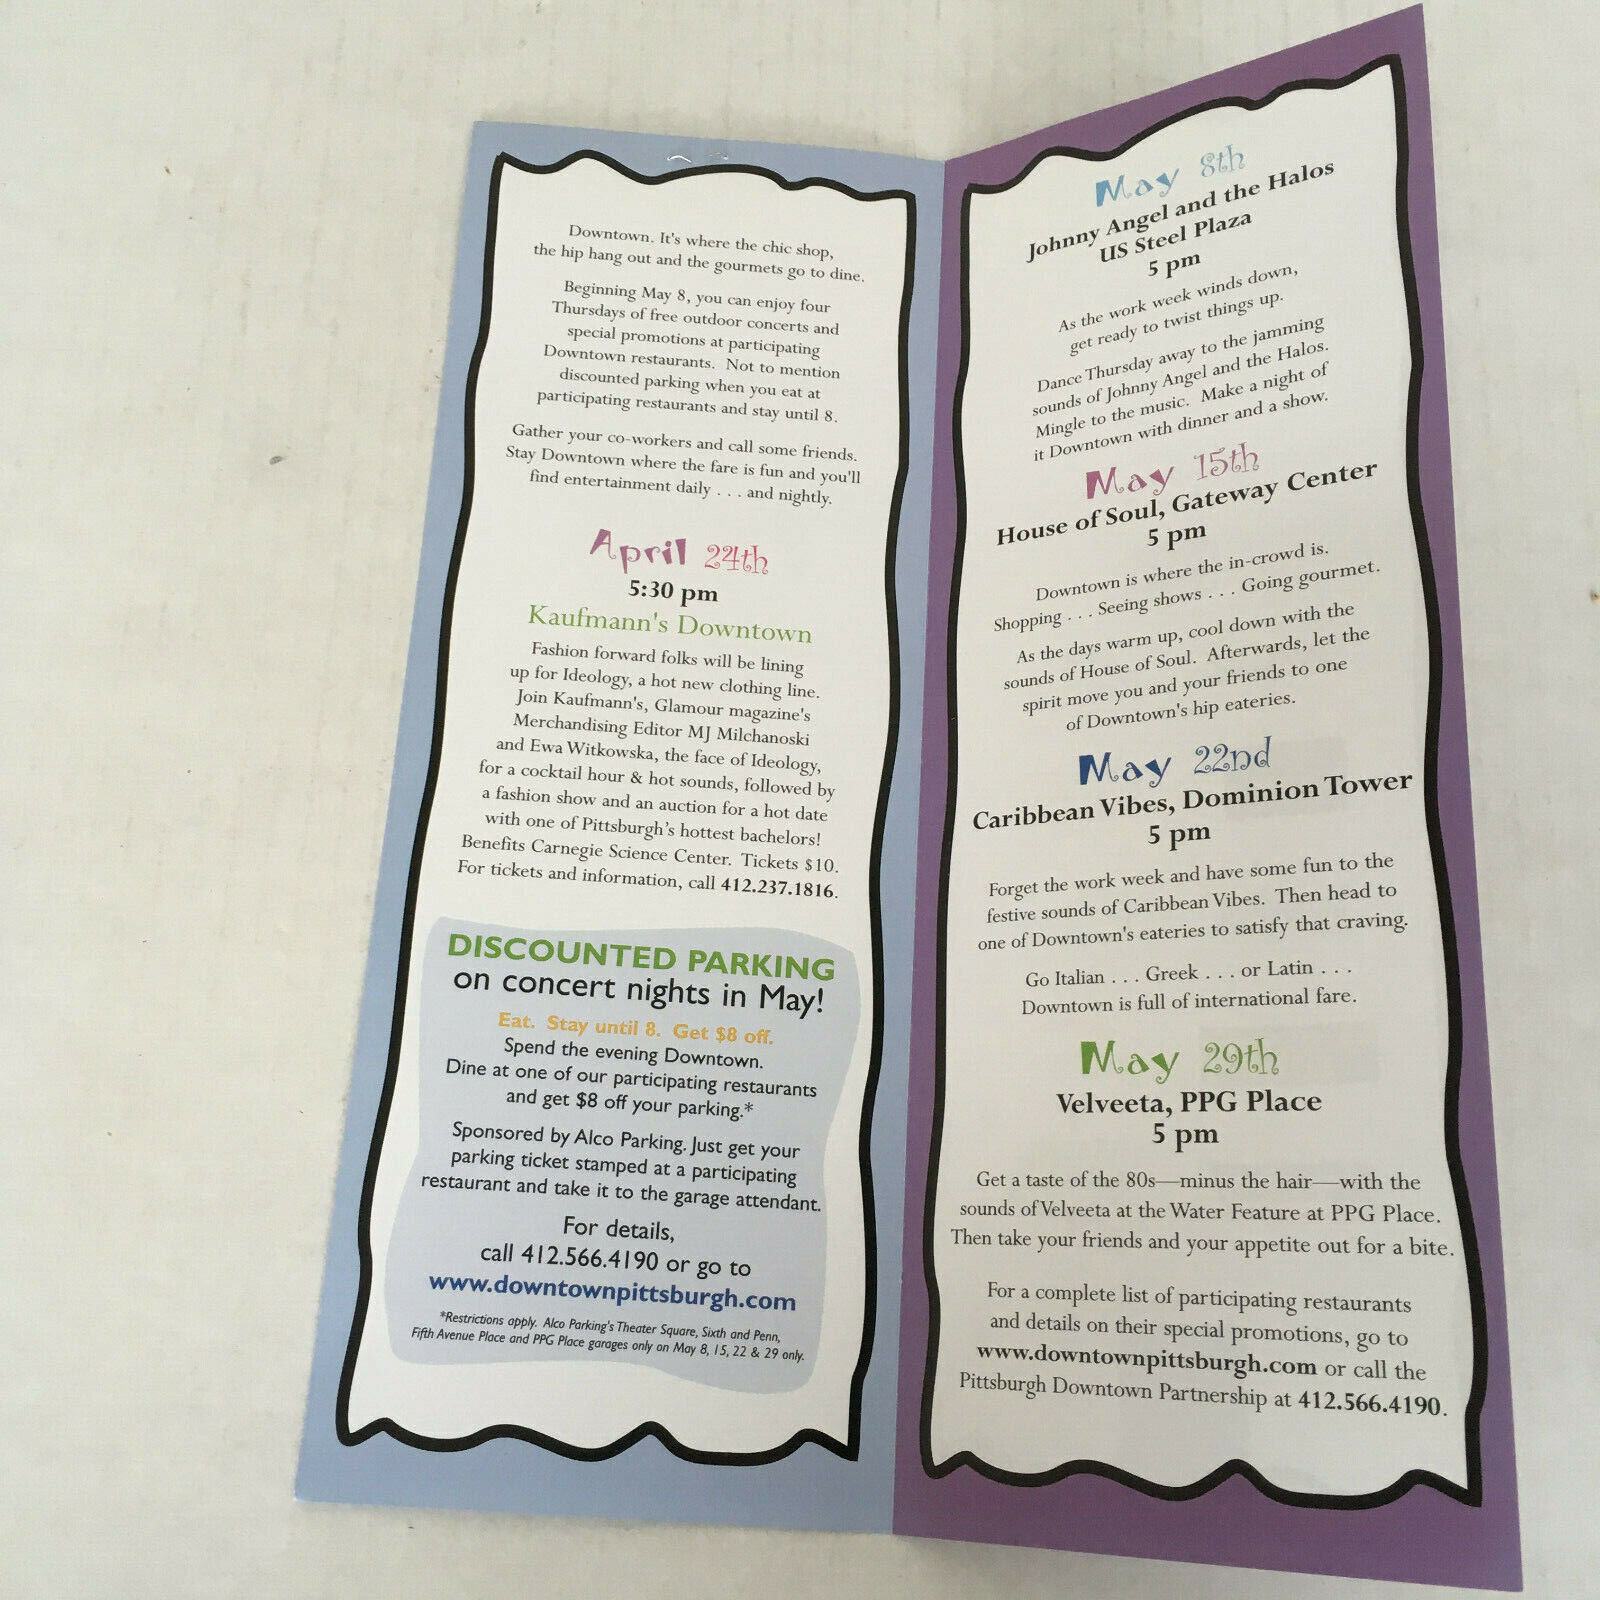 Downtown. It's where the chic shop,
the hip hang out and the gourmets go to dine.
Beginning May 8, you can enjoy four
Thursdays of free outdoor concerts and
special promotions at participating
Downtown restaurants. Not to mention
discounted parking when you eat at
participating restaurants and stay until 8.
Gather your co-workers and call some friends.
Stay Downtown where the fare is fun and you'll
find entertainment daily . . . and nightly.
April 24th
5:30 pm
Kaufmann's Downtown
Fashion forward folks will be lining
up for Ideology, a hot new clothing line.
Join Kaufmann's, Glamour magazine's
Merchandising Editor MJ Milchanoski
and Ewa Witkowska, the face of Ideology,
for a cocktail hour & hot sounds, followed by
a fashion show and an auction for a hot date
with one of Pittsburgh's hottest bachelors!
Benefits Carnegie Science Center. Tickets $10.
For tickets and information, call 412.237.1816.
DISCOUNTED PARKING
on concert nights in May!
Eat. Stay until 8. Get $8 off.
Spend the evening Downtown.
Dine at one of our participating restaurants
and get $8 off your parking.*
Sponsored by Alco Parking. Just get your
parking ticket stamped at a participating
restaurant and take it to the garage attendant.
For details,
call 412.566.4190 or go to
www.downtownpittsburgh.com
*Restrictions apply. Alco Parking's Theater Square, Sixth and Penn,
Fifth Avenue Place and PPG Place garages only on May 8, 15, 22 & 29 only.
May 8th
Johnny Angel and the Halos
US Steel Plaza
5 pm
As the work week winds down,
get ready to twist things up.
Dance Thursday away to the jamming
sounds of Johnny Angel and the Halos.
Mingle to the music. Make a night of
it Downtown with dinner and a show.
May 15th
House of Soul, Gateway Center
5 pm
Downtown is where the in-crowd is.
Shopping . . . Seeing shows . . . Going gourmet.
As the days warm up, cool down with the
sounds of House of Soul. Afterwards, let the
spirit move you and your friends to one
of Downtown's hip eateries.
May 22nd
Caribbean Vibes, Dominion Tower
5 pm
Forget the work week and have some fun to the
festive sounds of Caribbean Vibes. Then head to
one of Downtown's eateries to satisfy that craving.
Go Italian . . . Greek . . . or Latin . . .
Downtown is full of international fare.
May 29th
Velveeta, PPG Place
5 pm
Get a taste of the 80s—minus the hair—with the
sounds of Velveeta at the Water Feature at PPG Place.
Then take your friends and your appetite out for a bite.
For a complete list of participating restaurants
and details on their special promotions, go to
www.downtownpittsburgh.com or call the
Pittsburgh Downtown Partnership at 412.566.4190.